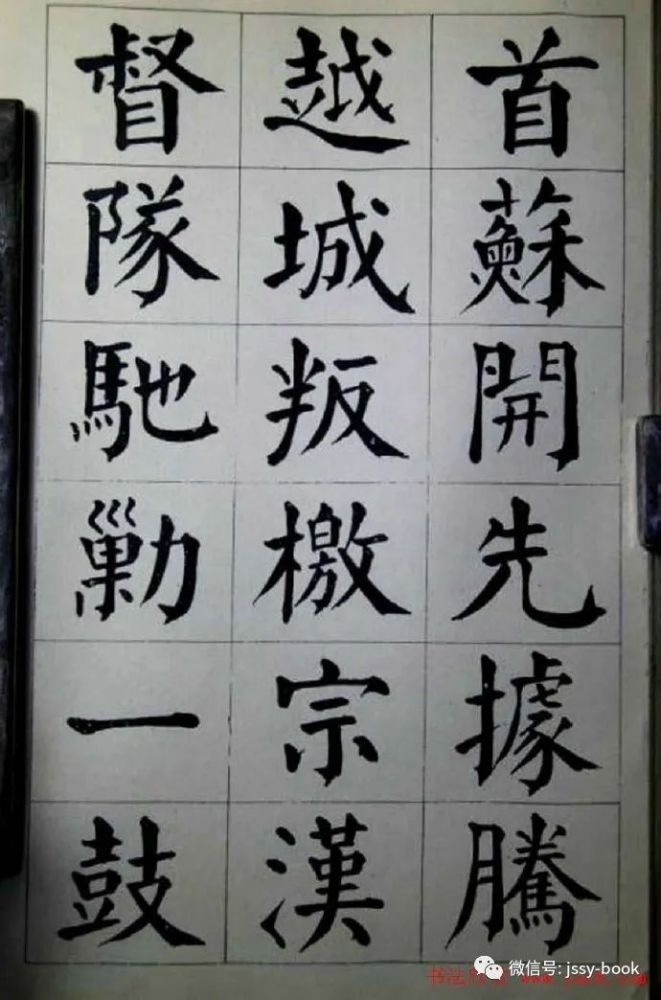 首蘇開先據騰
越城叛檄宗漢
督隊馳勦一鼓
微信号: jssy-book